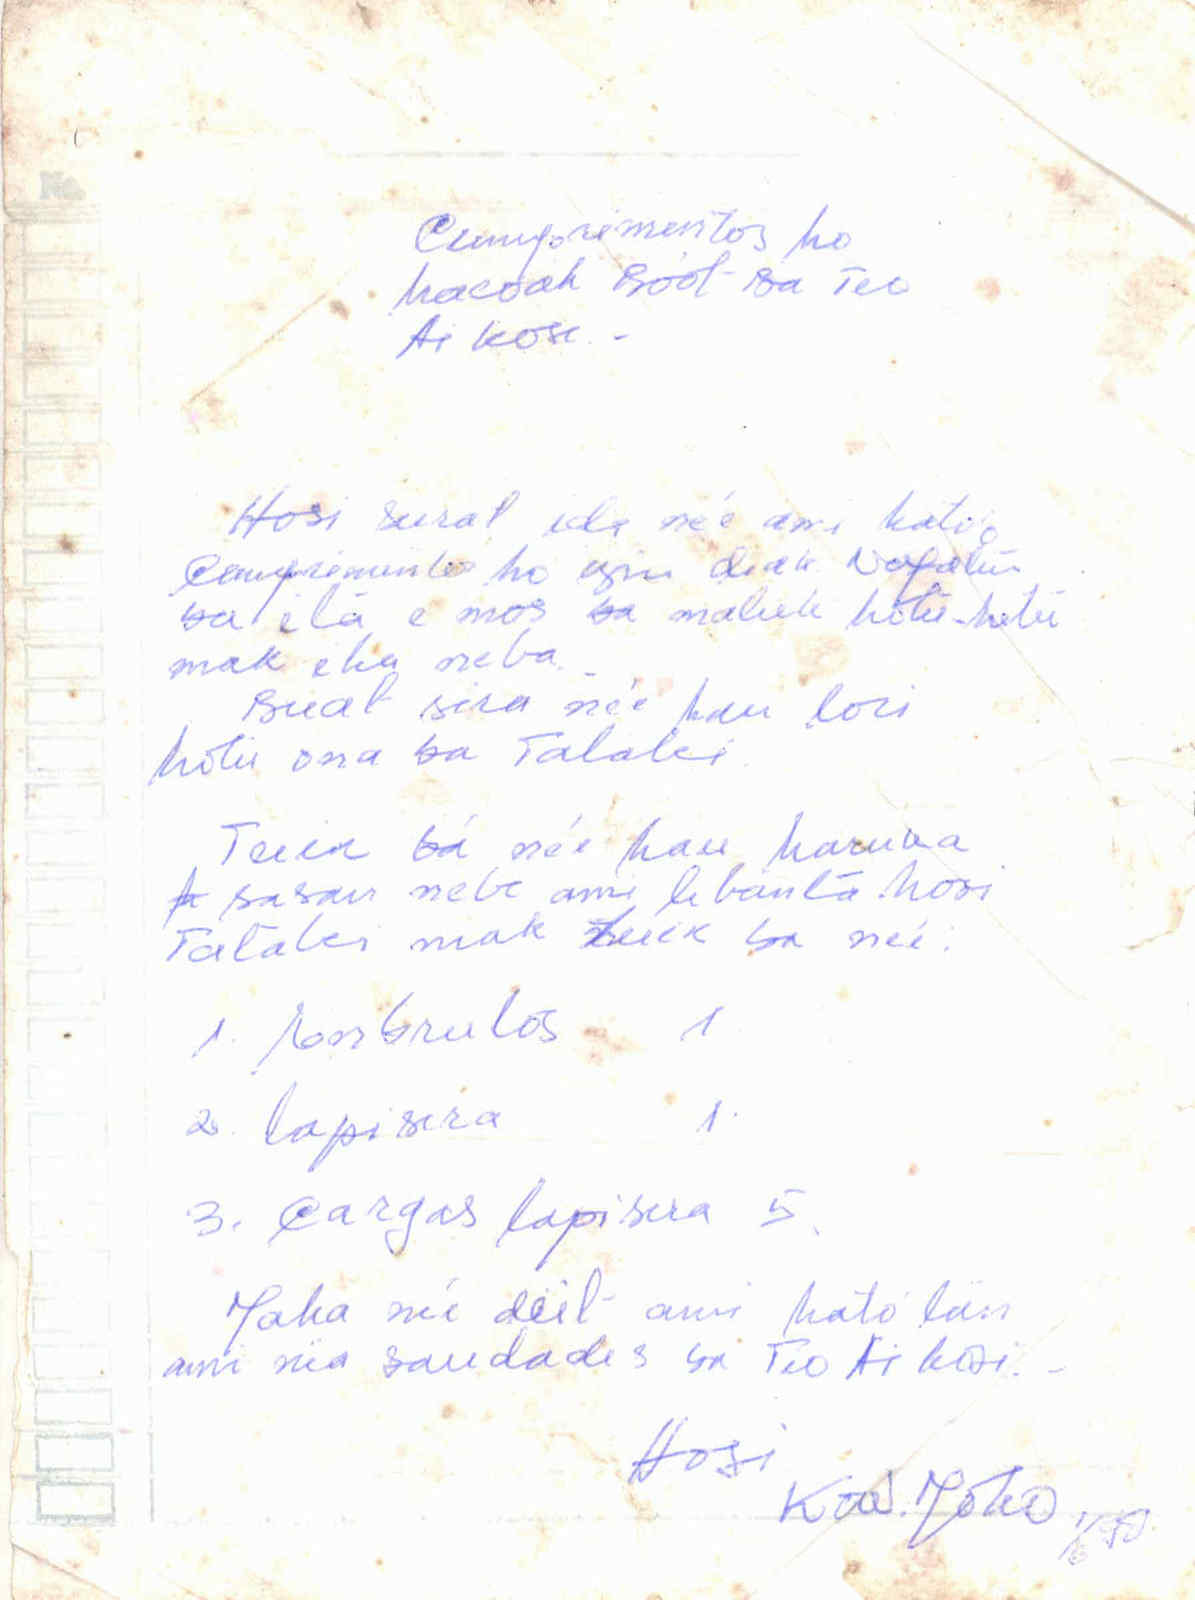 Cumprimentos ho
hacoak bóot ba Teo
Ai kose. -
Hosi surat ida née ami ható
Cumprimento ho isin diak
ba ita e mos ba maluk hotu-hotu
mak iha neba.
Buat sira née hau lori
hotu ona ba Talaki.
Tuir bá née hau haruka
sasan nebe ami lebanta hosi
Talaki mak tuir ba née:
1. Embrulos 1
2. lapisera 1.
3. Cargas lapisera 5.
Maka née deit ami ható tan
ami nia saudades ba Teo Ai kosi. -
Hosi